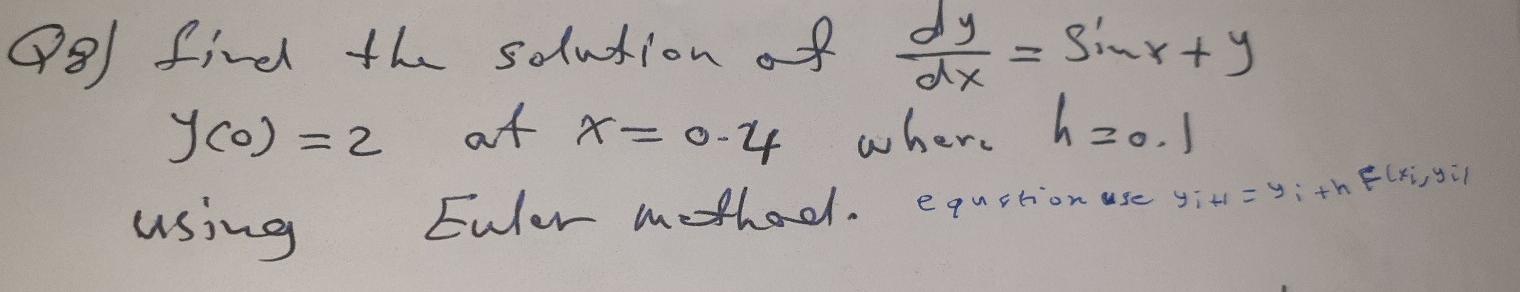 Q8) find the solution of dy/dx = Sinx + y
y(0) = 2 at x = 0.4 where h = 0.1
using Euler method. equstion use yi+1 = yi + h F(xi, yi)